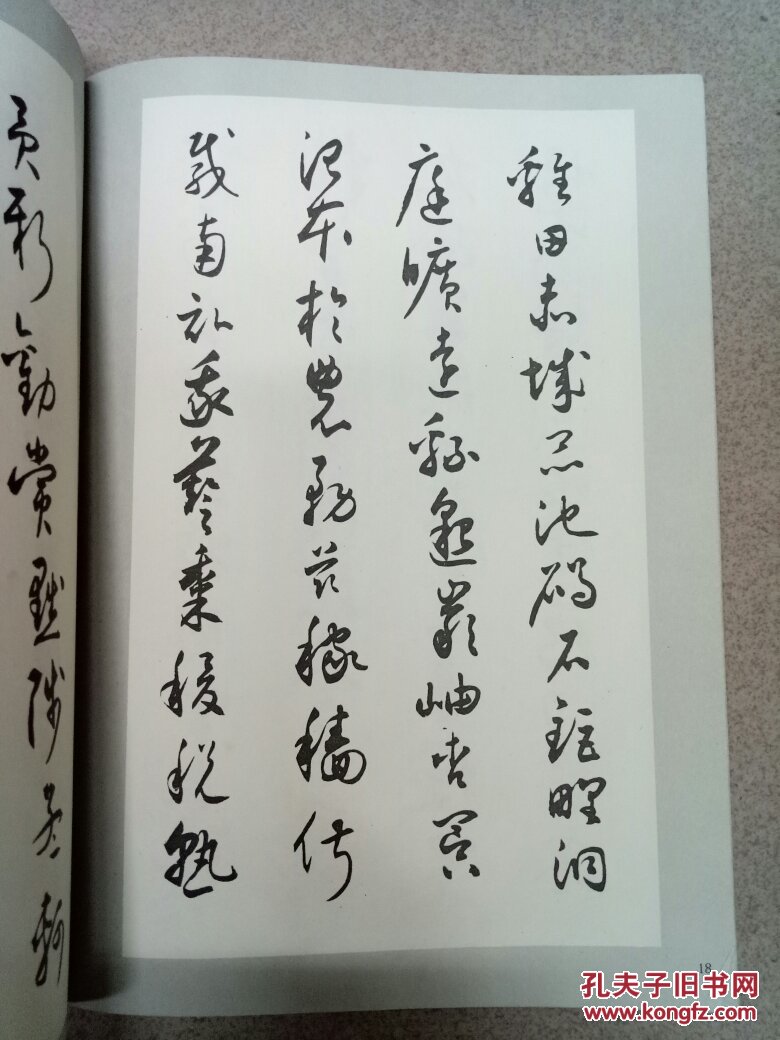 雞田赤城昆池碣石鉅野洞
庭曠遠緜邈巖岫杳冥
治本於農務茲稼穡俶
載南畝我藝黍稷稅熟
貢新勸賞黜陟孟軻
18
孔夫子旧书网
www.kongfz.com